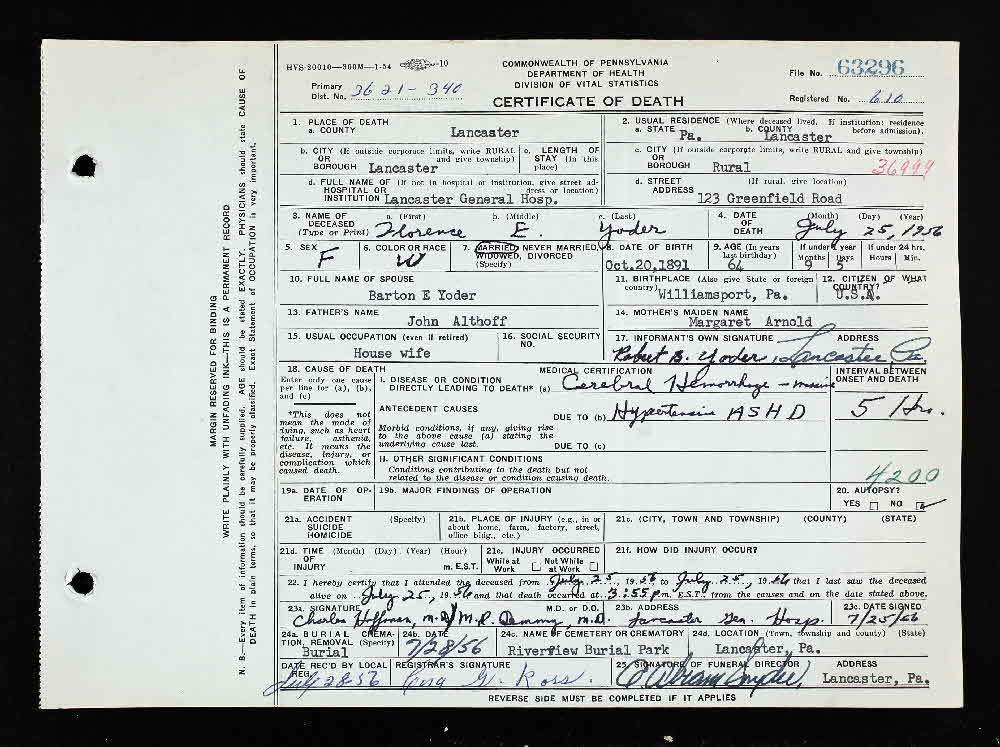 HVS-20010—300M—1-54 10
COMMONWEALTH OF PENNSYLVANIA
DEPARTMENT OF HEALTH
DIVISION OF VITAL STATISTICS
CERTIFICATE OF DEATH
File No. 63296
Primary Dist. No. 3621-340
Registered No. 610
1. PLACE OF DEATH
a. COUNTY Lancaster
2. USUAL RESIDENCE (Where deceased lived. If institution: residence before admission).
a. STATE Pa. b. COUNTY Lancaster
b. CITY (If outside corporate limits, write RURAL and give township) OR BOROUGH Lancaster
c. LENGTH OF STAY (in this place)
c. CITY (If outside corporate limits, write RURAL and give township) OR BOROUGH Rural
36999
d. FULL NAME OF (If not in hospital or institution, give street address or location) HOSPITAL OR INSTITUTION Lancaster General Hosp.
d. STREET ADDRESS (If rural, give location) 123 Greenfield Road
3. NAME OF DECEASED (Type or Print) a. (First) Florence b. (Middle) E. c. (Last) Yoder
4. DATE OF DEATH (Month) (Day) (Year) July 25, 1956
5. SEX F
6. COLOR OR RACE W
7. MARRIED, NEVER MARRIED, WIDOWED, DIVORCED (Specify)
8. DATE OF BIRTH Oct.20,1891
9. AGE (In years last birthday) 64
If under 1 year Months 9 Days 5
If under 24 hrs. Hours Min.
10. FULL NAME OF SPOUSE
Barton E Yoder
11. BIRTHPLACE (Also give State or foreign country) Williamsport, Pa.
12. CITIZEN OF WHAT COUNTRY? U.S.A.
13. FATHER'S NAME
John Althoff
14. MOTHER'S MAIDEN NAME
Margaret Arnold
15. USUAL OCCUPATION (even if retired)
House wife
16. SOCIAL SECURITY NO.
17. INFORMANT'S OWN SIGNATURE ADDRESS
Robert B. Yoder, Lancaster Pa.
18. CAUSE OF DEATH
Enter only one cause per line for (a), (b), and (c)
MEDICAL CERTIFICATION
INTERVAL BETWEEN ONSET AND DEATH
I. DISEASE OR CONDITION
DIRECTLY LEADING TO DEATH* (a) Cerebral Hemorrhage - massive
*This does not mean the mode of dying, such as heart failure, asthenia, etc. It means the disease, injury, or complication which caused death.
ANTECEDENT CAUSES
DUE TO (b) Hypertension ASHD
5 Hrs.
Morbid conditions, if any, giving rise to the above cause (a) stating the underlying cause last.
DUE TO (c)
II. OTHER SIGNIFICANT CONDITIONS
Conditions contributing to the death but not related to the disease or condition causing death.
4200
19a. DATE OF OPERATION
19b. MAJOR FINDINGS OF OPERATION
20. AUTOPSY?
YES NO
21a. ACCIDENT SUICIDE HOMICIDE (Specify)
21b. PLACE OF INJURY (e.g., in or about home, farm, factory, street, office bldg., etc.)
21c. (CITY, TOWN AND TOWNSHIP) (COUNTY) (STATE)
21d. TIME OF INJURY (Month) (Day) (Year) (Hour) m. E.S.T.
21e. INJURY OCCURRED While at Work Not While at Work
21f. HOW DID INJURY OCCUR?
22. I hereby certify that I attended the deceased from July 25, 1956 to July 25, 1956 that I last saw the deceased
alive on July 25, 1956 and that death occurred at 3:55 p.m. E.S.T. from the causes and on the date stated above.
23a. SIGNATURE M.D. or D.O.
Charles Hoffman, M.D. M.D.
23b. ADDRESS
Lancaster Gen. Hosp.
23c. DATE SIGNED
7/25/56
24a. BURIAL CREMATION, REMOVAL (Specify) Burial
24b. DATE 7/28/56
24c. NAME OF CEMETERY OR CREMATORY Riverview Burial Park
24d. LOCATION (Town, township and county) (State) Lancaster, Pa.
DATE REC'D BY LOCAL REG. July 28-56
REGISTRAR'S SIGNATURE W. Ross.
25. SIGNATURE OF FUNERAL DIRECTOR Snyder,
ADDRESS Lancaster, Pa.
REVERSE SIDE MUST BE COMPLETED IF IT APPLIES
MARGIN RESERVED FOR BINDING
WRITE PLAINLY WITH UNFADING INK—THIS IS A PERMANENT RECORD
N. B.—Every item of information should be carefully supplied. AGE should be stated EXACTLY. PHYSICIANS should state CAUSE OF
DEATH in plain terms, so that it may be properly classified. Exact Statement of OCCUPATION is very important.